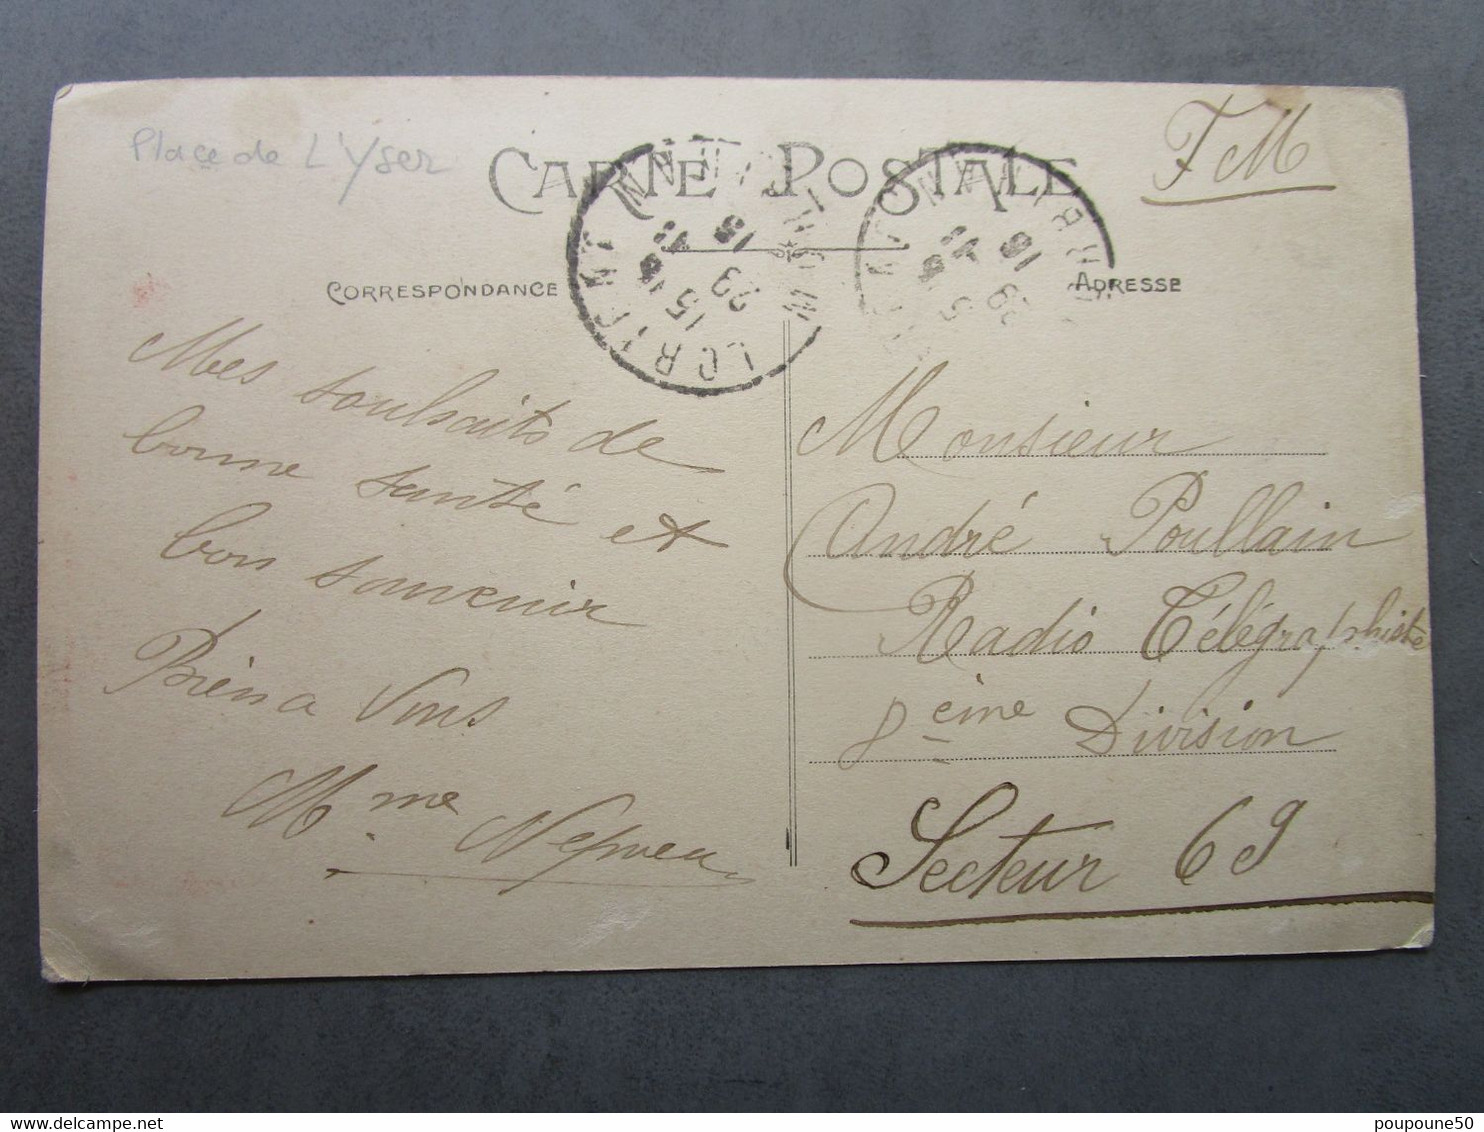 Place de L'Yser
CARTE POSTALE
F M
CORRESPONDANCE
ADRESSE
LORIENT
MORBIHAN
15
23
15
Mes souhaits de
bonne santé et
bon souvenir
Bien a Vous
Mme Nepveu
Monsieur
André Poullain
Radio Télégraphiste
8ème Division
Secteur 69
poupoune50